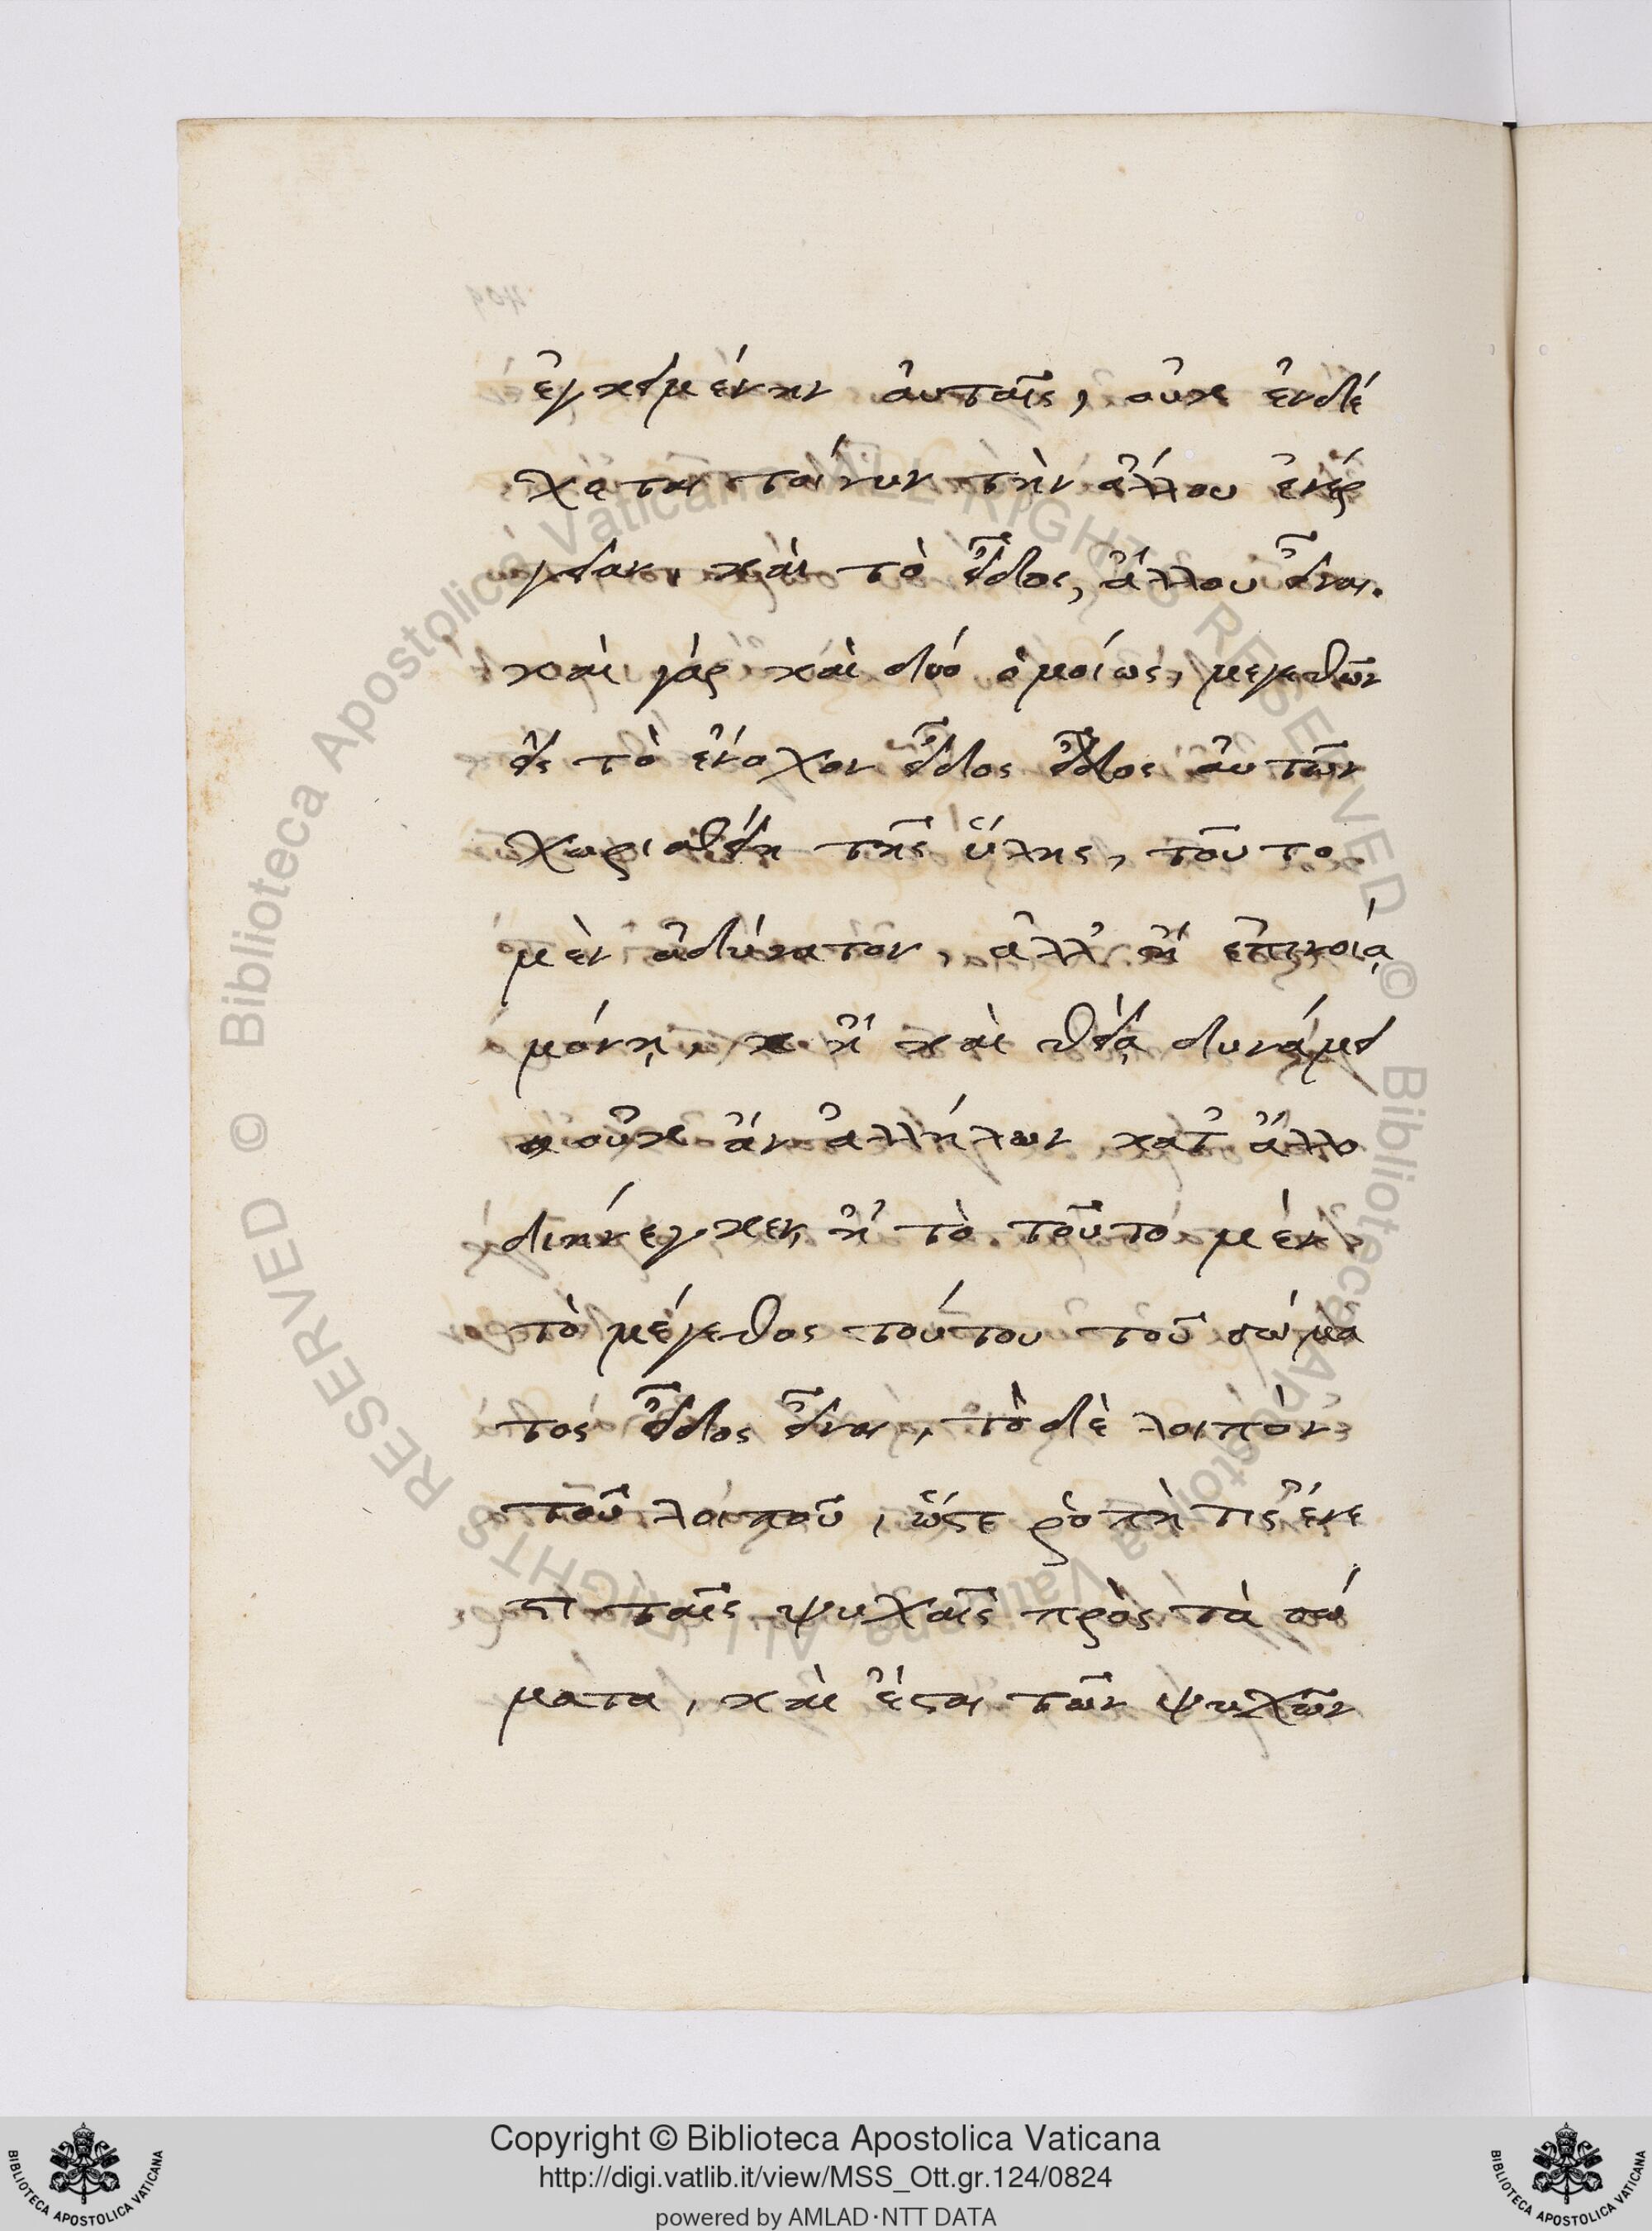 ἐγκειμένην αὐταῖς, οὐκ ἐνδέ
χεται τοίνυν τὴν ἄλλου ἐνέρ
γειαν, καὶ τὸ εἶδος, ἄλλου εἶναι.
καὶ γὰρ καὶ δύο ὁμοίως, μεγεθῶν
εἰς τὸ ἐνόχον εἶδος εἶδος αὐτῶν
χωρισθείη τῆς ὕλης, τοῦτο
μὲν ἀδύνατον, ἀλλ' ἢ ἐπινοίᾳ
μόνῃ, ἢ καὶ θείᾳ δυνάμει
οὐκ ἂν ἀλλήλων κατ' ἄλλο
διηνέγκεν, ἢ τὸ τοῦτο μὲν
τὸ μέγεθος τούτου τοῦ σώμα
τος εἶδος εἶναι, τὸ δὲ λοιπὸν
τοῦ λοιποῦ, ὥστε ῥοπὴ τις ἔνε
στι ταῖς ψυχαῖς πρὸς τὰ σώ
ματα, καὶ ἔσται τῶν ψυχῶν
© Biblioteca Apostolica Vaticana ALL RIGHTS RESERVED © Biblioteca Apostolica Vaticana ALL RIGHTS RESERVED
Copyright © Biblioteca Apostolica Vaticana
http://digi.vatlib.it/view/MSS_Ott.gr.124/0824
powered by AMLAD·NTT DATA
BIBLIOTECA APOSTOLICA VATICANA
BIBLIOTECA APOSTOLICA VATICANA